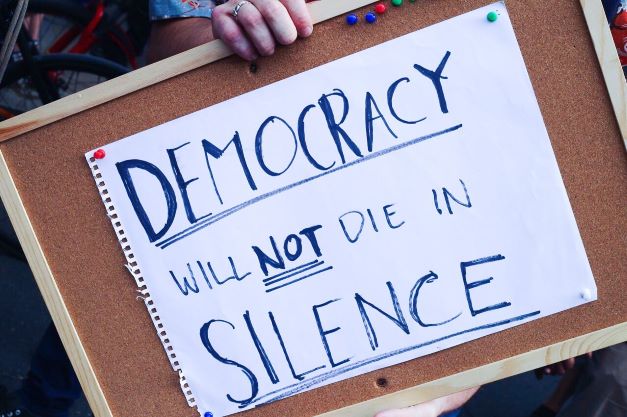 DEMOCRACY
WILL NOT DIE IN
SILENCE